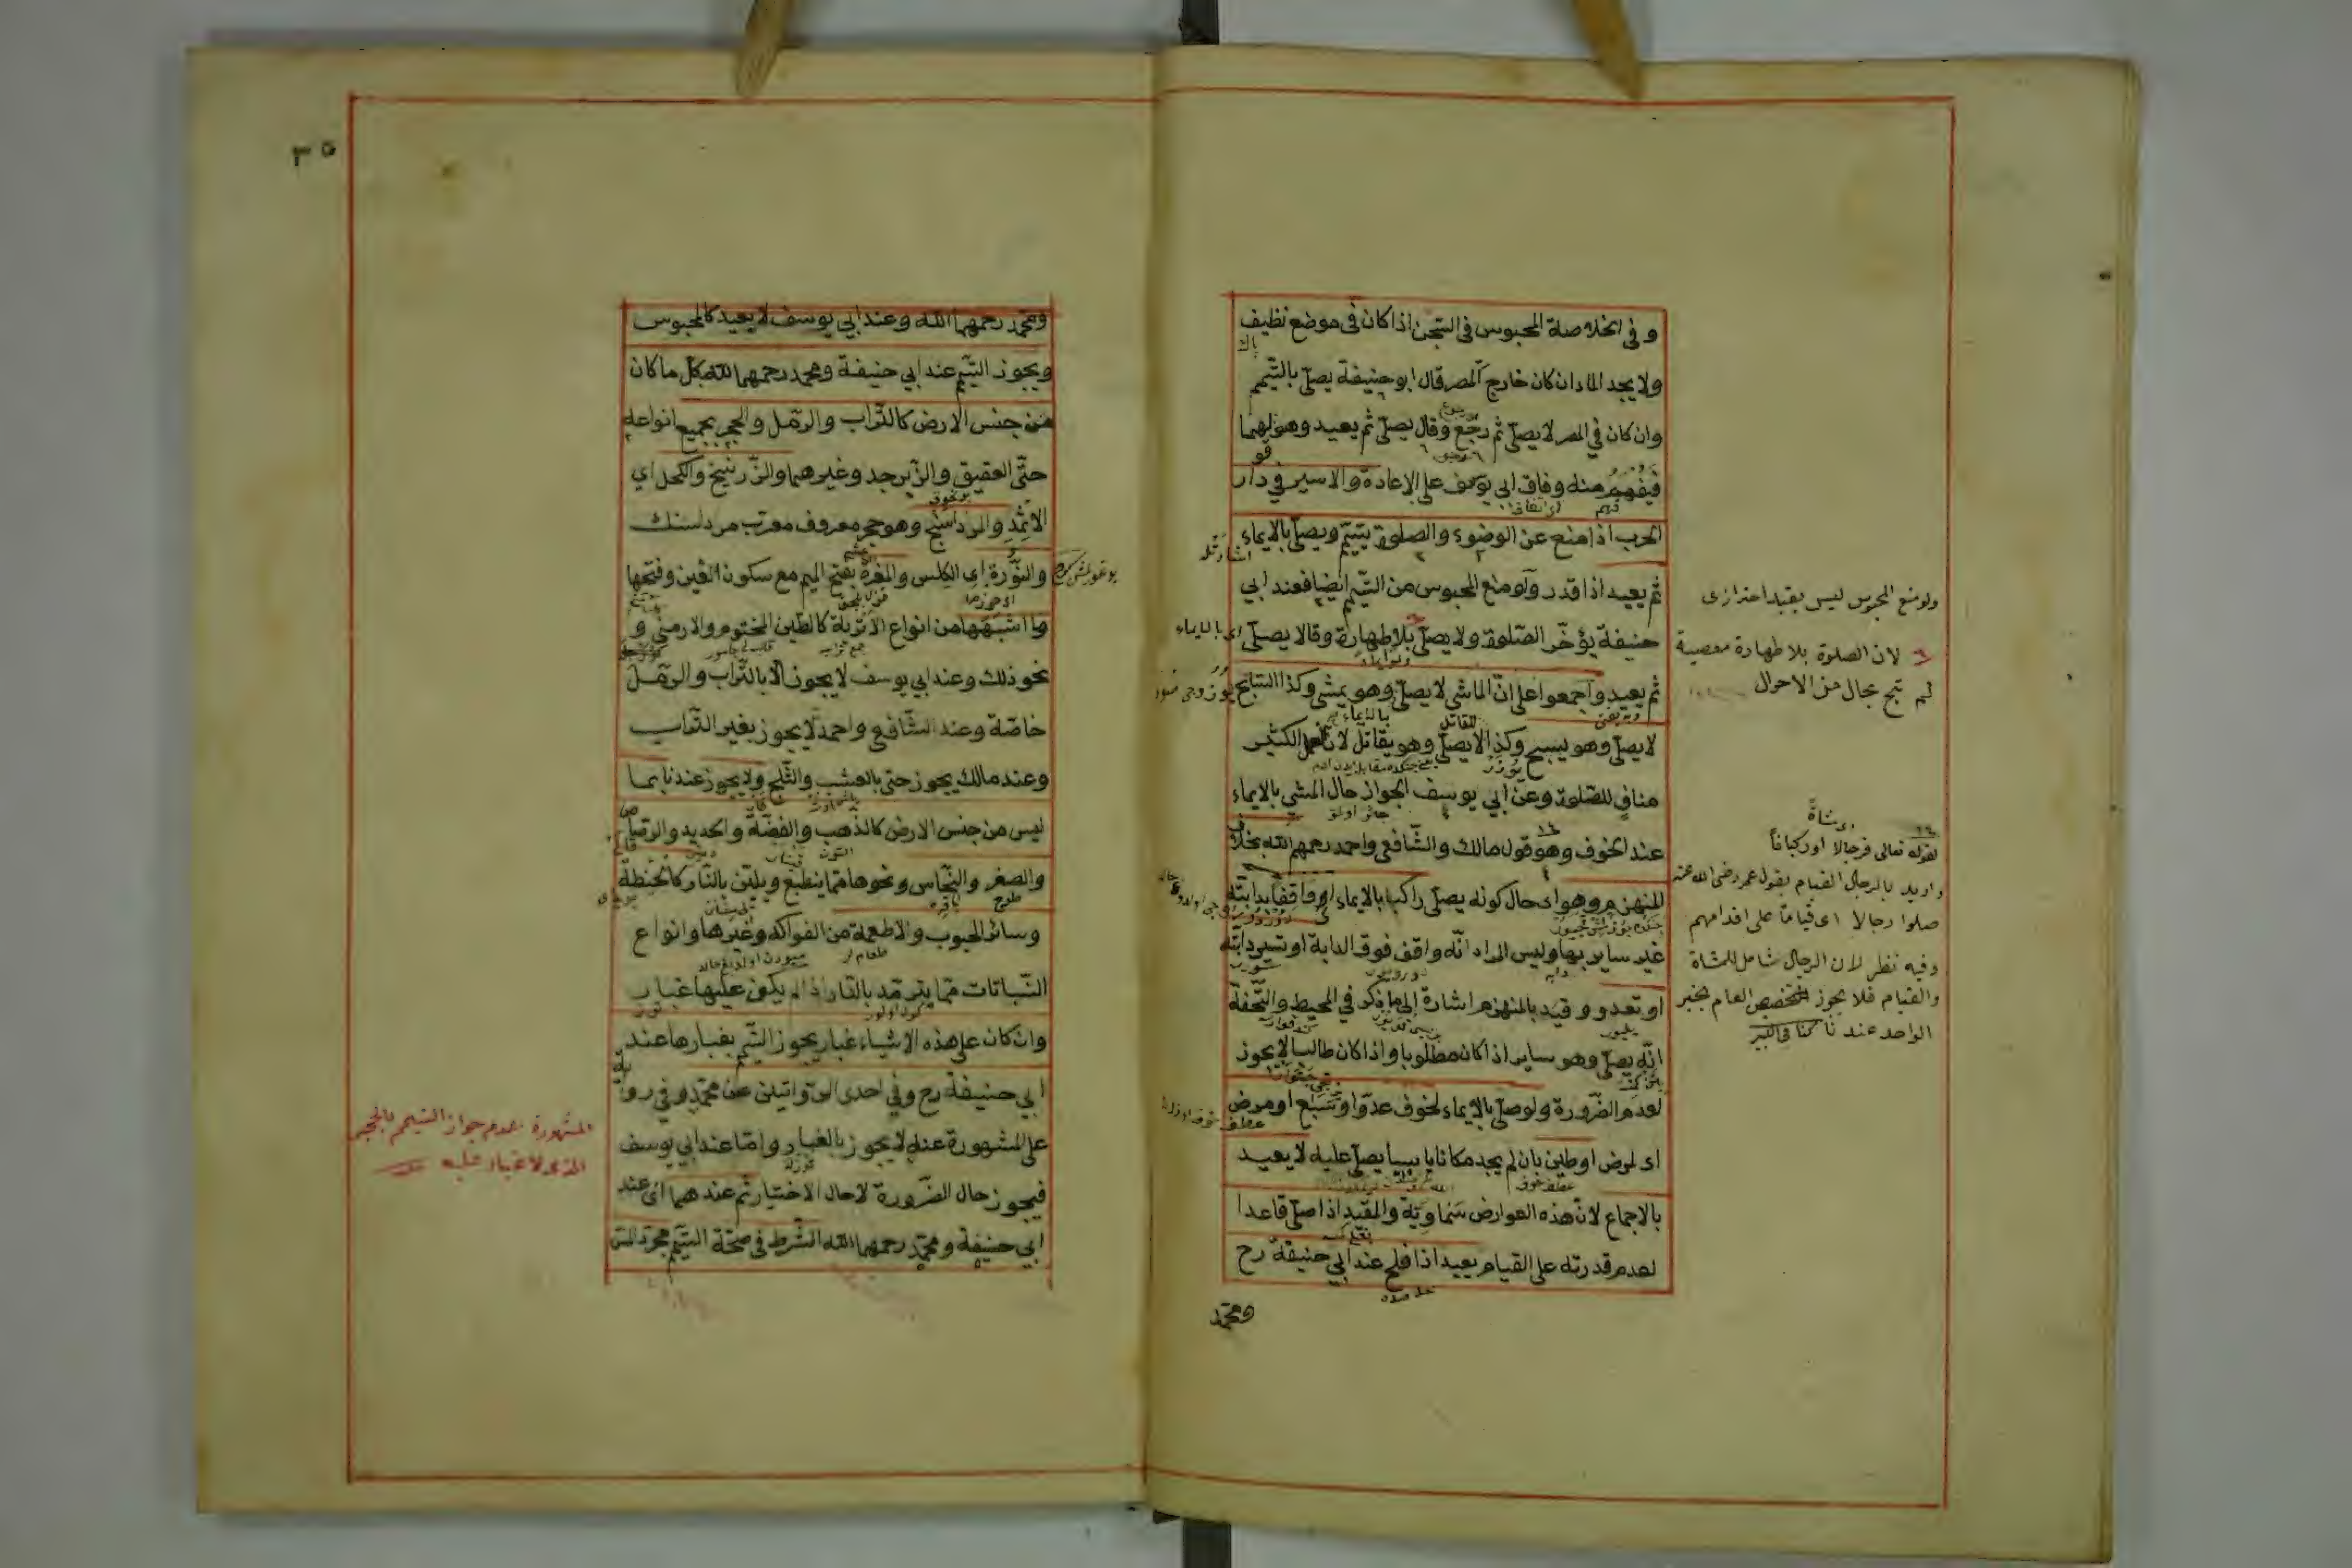 وفي الخلاصة المحبوس في السّجن اذا كان في موضع نظيف
ولا يجد الماء ان كان خارج المصر قال ابو حنيفة يصلّي بالتّيمّم
وان كان في المصر لا يصلّي ثم رجع وقال يصلّي ثم يعيد وهو قولهما
فيفهم منه وفاق ابي يوسف على الاعادة والاسير في دار
الحرب اذا منع عن الوضوء والصلوة يتيمّم ويصلّي بالايماء
ثم يعيد اذا قدر ولو منع المحبوس من التيمّم ايضا فعند ابي
حنيفة يؤخّر الصّلوة ولا يصلّي بلا طهارة وقالا يصلّي
ثم يعيد واجمعوا على انّ الماشي لا يصلّي وهو يمشي وكذا السّابح
لا يصلّي وهو يسبح وكذا لا يصلّي وهو يقاتل لانّ العمل الكثير
مناف للصّلوة وعن ابي يوسف الجواز حال المشي بالايماء
عند الخوف وهو قول مالك والشّافعي واحمد رحمهم الله بخلاف
المنهزم وهو اى حال كونه يصلّي راكبا بالايماء او واقفا بدابّته
غير ساير بها وليس المراد انّه واقف فوق الدابة او تسير دابّته
او تعدو وقيّد بالمنهزم اشارة الى ما ذكر في المحيط والتّحفة
انّه يصلّي وهو ساير اذا كان مطلوبا واذا كان طالبا لا يجوز
لعدم الضّرورة ولو صلّي بالايماء لخوف عدوّ او سبع او مرض
اى لمرض او طين بان لم يجد مكانا يابسا يصلّي عليه لا يعيد
بالاجماع لانّ هذه العوارض سماويّة والمقيّد اذا صلّي قاعدا
لعدم قدرته على القيام يعيد اذا فلح عند ابي حنيفة رح
ومحمّد
ولو منع المحبوس ليس بقيد احترازى
لان الصلوة بلا طهارة معصية
لم تبح بحال من الاحوال
اى مشاةً
لقوله تعالى فرجالا او ركبانًا
واريد بالرجال القيام بقول عمر رضى الله عنه
صلوا رجالا اى قيامًا على اقدامهم
وفيه نظر لان الرجال شامل للمشاة
والقيام فلا يجوز تخصيص العام بخبر
الواحد عندنا كذا في الكبير
٣٥
ومحمّد رحمهما الله وعند ابي يوسف لا يعيد كالمحبوس
ويجوز التيمّم عند ابي حنيفة ومحمد رحمهما الله بكل ما كان
من جنس الارض كالتّراب والرّمل والحجر بجميع انواعه
حتّى العقيق والزّبرجد وغيرهما والزّرنيخ والكحل اي
الاثمد والمرداسنج وهو حجر معروف معرّب مردلسنك
والنّورة اى الكلس والمغرة بفتح الميم مع سكون الغين وفتحها
وما اشبهها من انواع الاتربة كالطّين المختوم والارمني و
نحو ذلك وعند ابي يوسف لا يجوز الّا بالتّراب والرّمل
خاصّة وعند الشّافعي واحمد لا يجوز بغير التّراب
وعند مالك يجوز حتى بالعشب والثّلج ولا يجوز عندنا بما
ليس من جنس الارض كالذهب والفضّة والحديد والرّصاص
والصفر والنّحاس ونحوها ممّا ينطبع ويلين بالنّار كالحنطة
وسائر الحبوب والاطعمة من الفواكه وغيرها وانواع
النّباتات ممّا يترمّد بالنّار اذا لم يكن عليها غبار
وان كان على هذه الاشياء غبار يجوز التيمّم بغبارها عند
ابي حنيفة رح وفي احدى الرّوايتين عن محمّد وفي رواية
على المشهورة عنه لا يجوز بالغبار وامّا عند ابي يوسف
فيجوز حال الضّرورة لا حال الاختيار ثم عندهما اى عند
ابي حنيفة ومحمّد رحمهما الله الشّرط في صحّة التيمّم مجرّد المسّ
المشهورة عدم جواز التيمم بالحجر
الذى لا غبار عليه